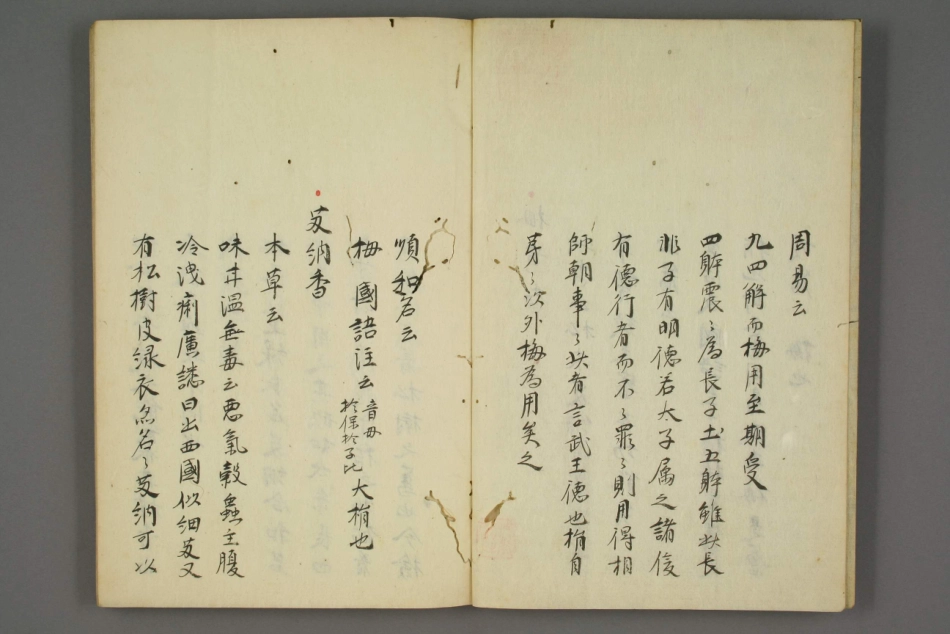 周易云
九四解而梅用至期受
四解震〻為長子土五解雖此長
非子有明德若大子属之諸侯
有德行者而不〻罪〻則用得相
師朝事〻以者言武王德也楫自
身〻以外梅為用矣之
順和名云
梅 國語注云 音母 於保於々比 大楫也
艾納香
本草云
味甘溫無毒云惡氣殺蟲主腹
冷洩痢廣誌曰出西國似細艾又
有松樹皮緑衣亦名〻艾納可以